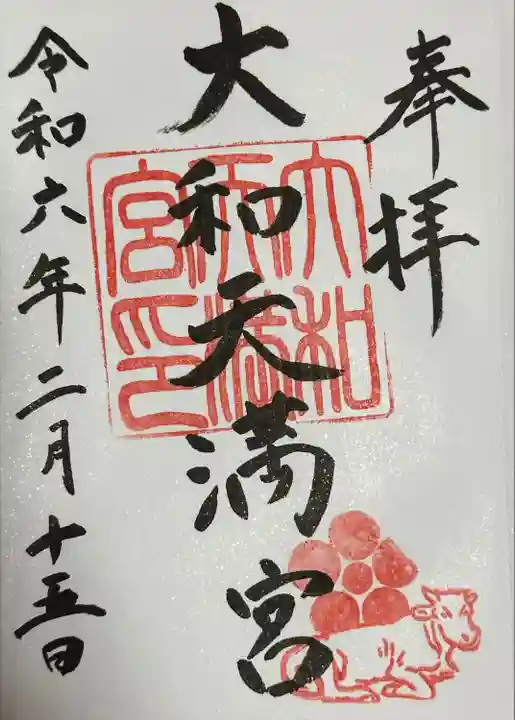 奉拝
大和天満宮
大和
天満
宮印
令和六年二月十五日